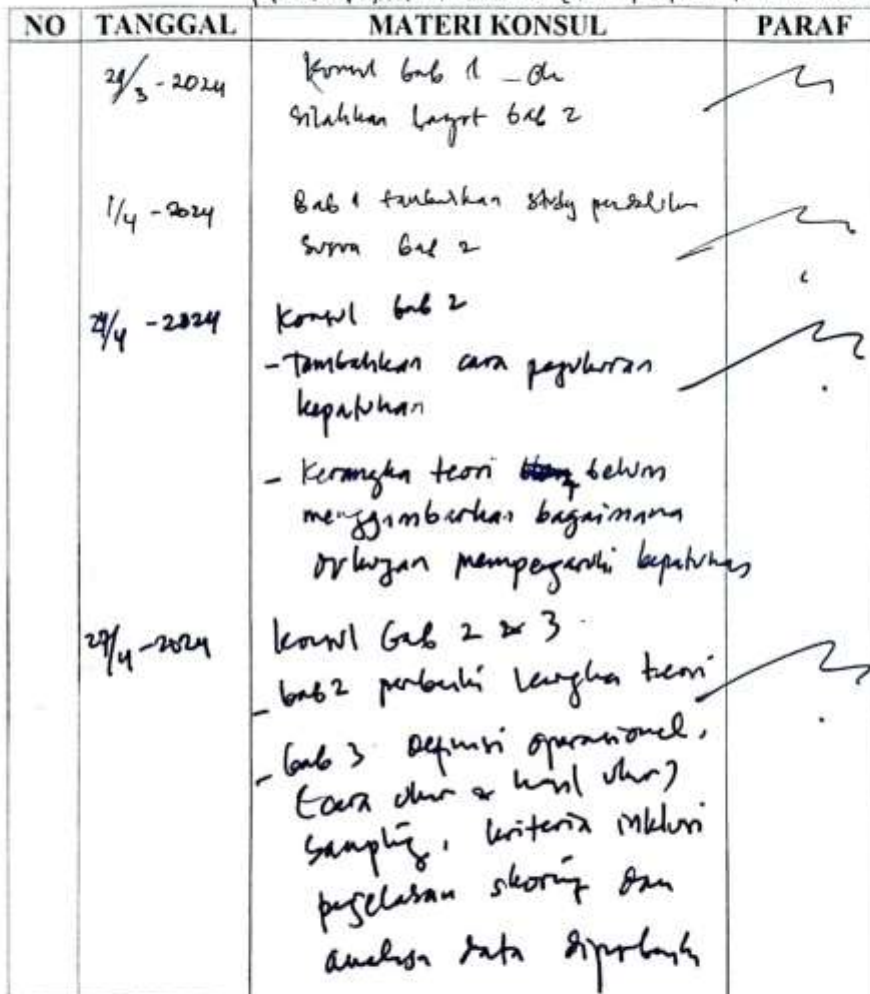 NO TANGGAL MATERI KONSUL PARAF
29/3 - 2024 Konsul bab 1 - ok
silahkan lanjut bab 2
1/4 - 2024 Bab 1 tambahkan study
Susun bab 2
/4 - 2024 Konsul bab 2
- Tambahkan cara pengukuran
kepatuhan
- Kerangka teori belum
menggambarkan bagaimana
dukungan mempengaruhi kepatuhan
27/4 - 2024 konsul bab 2 & 3
- bab 2 perbaiki kerangka teori
- bab 3 Definisi operasional,
(cara ukur & hasil ukur)
sampling, kriteria inklusi
penjelasan skoring dan
analisa data diperbaiki